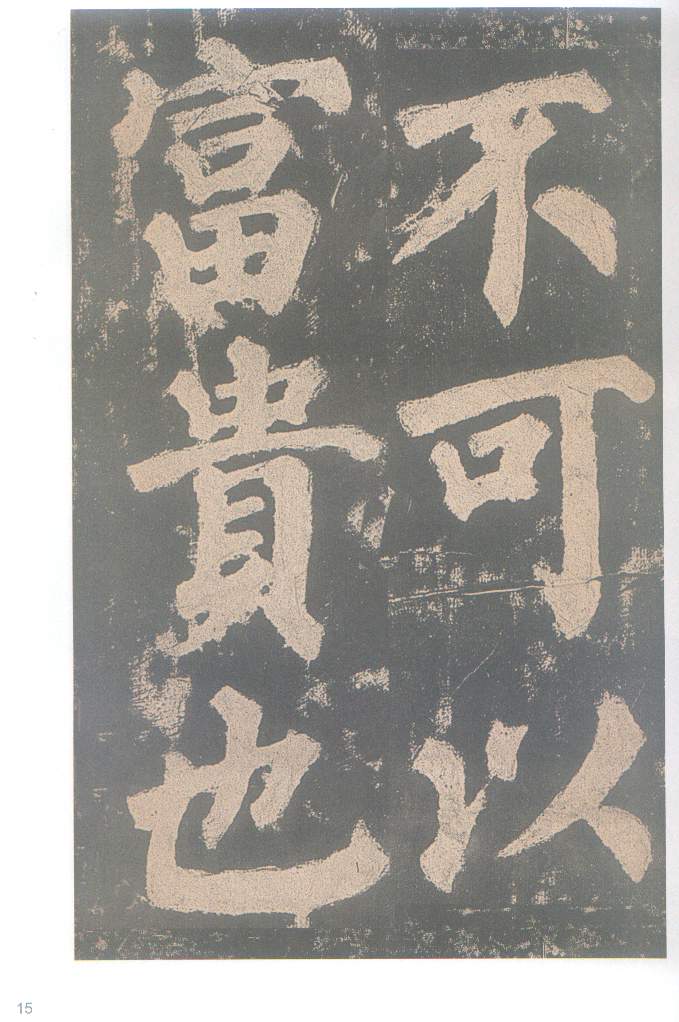 不可以
富貴也
15